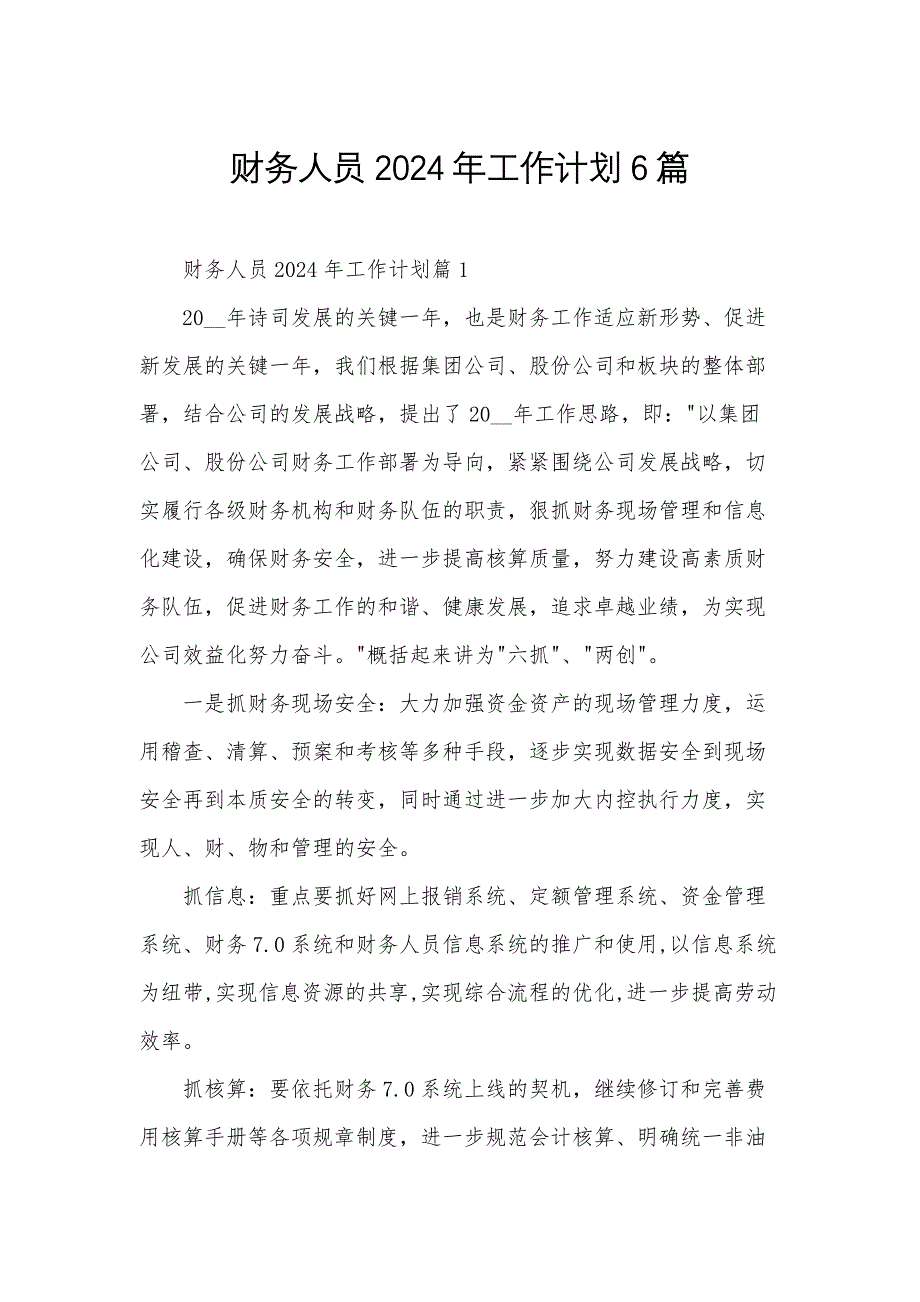 财务人员 2024 年工作计划 6 篇
财务人员 2024 年工作计划篇 1
20__年诗司发展的关键一年，也是财务工作适应新形势、促进
新发展的关键一年，我们根据集团公司、股份公司和板块的整体部
署，结合公司的发展战略，提出了 20__年工作思路，即："以集团
公司、股份公司财务工作部署为导向，紧紧围绕公司发展战略，切
实履行各级财务机构和财务队伍的职责，狠抓财务现场管理和信息
化建设，确保财务安全，进一步提高核算质量，努力建设高素质财
务队伍，促进财务工作的和谐、健康发展，追求卓越业绩，为实现
公司效益化努力奋斗。"概括起来讲为"六抓"、"两创"。
一是抓财务现场安全：大力加强资金资产的现场管理力度，运
用稽查、清算、预案和考核等多种手段，逐步实现数据安全到现场
安全再到本质安全的转变，同时通过进一步加大内控执行力度，实
现人、财、物和管理的安全。
抓信息：重点要抓好网上报销系统、定额管理系统、资金管理
系统、财务 7.0 系统和财务人员信息系统的推广和使用,以信息系统
为纽带,实现信息资源的共享,实现综合流程的优化,进一步提高劳动
效率。
抓核算：要依托财务 7.0 系统上线的契机，继续修订和完善费
用核算手册等各项规章制度，进一步规范会计核算、明确统一非油